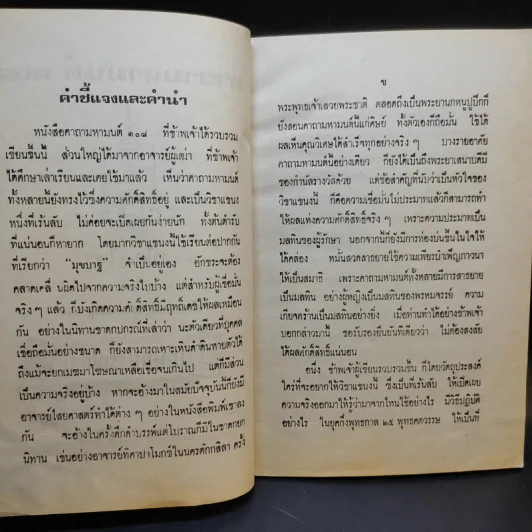 คำชี้แจงและคำนำ
หนังสือคาถามหามนต์ ๑๐๘ ที่ข้าพเจ้าได้รวบรวม
เขียนขึ้นนี้ ส่วนใหญ่ได้มาจากอาจารย์ผู้เฒ่า ที่ข้าพเจ้า
ได้ศึกษาเล่าเรียนและเคยใช้มาแล้ว เห็นว่าคาถามหามนต์
ทั้งหลายนี้ยังทรงไว้ซึ่งความศักดิ์สิทธิ์อยู่ และเป็นวิชาแขนง
หนึ่งที่เร้นลับ ไม่ค่อยจะเปิดเผยกันง่ายนัก ทั้งต้นตำรับ
ที่แน่นอนก็หายาก โดยมากวิชาแขนงนี้ใช้เรียนต่อปากกัน
ที่เรียกว่า "มุขบาฐ" จำเป็นอยู่เอง อักขระจะต้อง
คลาดเคลื่อน ผิดไปจากความจริงไปบ้าง แต่สำหรับผู้เชื่อมั่น
จริง ๆ แล้ว ก็บังเกิดความศักดิ์สิทธิ์มีฤทธิ์เดชให้ผลเหมือน
กัน อย่างในนิทานชาดกปกรณ์ที่เล่าว่า นะตัวเดียวที่บุคคล
เชื่อถือมั่นอย่างขนาด ก็ยังสามารถเหาะเหินดำดินหายตัวได้
ถึงแม้จะยกเมฆมาโฆษณาเหลือเชื่อจนเกินไป แต่ก็มีส่วน
เป็นความจริงอยู่บ้าง หากจะอ้างมาในสมัยปัจจุบันนี้ก็ยังมี
อาจารย์ไสยศาสตร์ทำได้ต่าง ๆ อย่างในหนังสือพิมพ์เขาลง
กัน จะอ้างในครั้งดึกดำบรรพ์แต่โบราณก็มีในชาดกยก
นิทาน เช่นอย่างอาจารย์ทิศาปาโมกข์ในนครตักกสิลา ครั้ง
ข
พระพุทธเจ้าเสวยพระชาติ ตลอดถึงเป็นพระยานกหนูปูปีกก็
ยังสอนคาถามหามนต์นี้แก่ศิษย์ ทั้งตัวเองก็ถือมั่น ใช้ได้
ผลเห็นคุณวิเศษได้สำเร็จทุกอย่างจริง ๆ บางรายอาศัย
คาถามหามนต์นี้อย่างเดียว ก็ยังได้เป็นถึงพระยาเสนาบดีมี
ของกำนัลรางวัลด้วย แต่ข้อสำคัญที่นับว่าเป็นหัวใจของ
วิชาแขนงนี้ ก็คือความเชื่อมั่นไม่ประมาทแล้วก็สามารถทำ
ให้ผลแห่งความศักดิ์สิทธิ์จริง ๆ เพราะความประมาทเป็น
มลทินของผู้รักษา นอกจากก็ยังมีการท่องบ่นขึ้นในใจให้
ได้คล่อง หมั่นสวดสาธยายใช้ความเพียรบำเพ็ญภาวนา
ให้เป็นสมาธิ เพราะคาถามหามนต์ทั้งหลายมีการสาธยาย
เป็นมลทิน อย่างผู้หญิงเป็นมลทินของพรหมจรรย์ ความ
เกียจคร้านเป็นมลทินอย่างยิ่ง เมื่อท่านทำได้อย่างข้าพเจ้า
บอกกล่าวมานี้ ขอรับรองยืนยันทีเดียวว่า ไม่ต้องสงสัย
ได้ผลศักดิ์สิทธิ์แน่นอน
อนึ่ง ข้าพเจ้าผู้เขียนรวบรวมขึ้น ก็โดยวัตถุประสงค์
ใคร่ที่จะอยากให้วิชาแขนงนี้ ซึ่งเป็นที่เร้นลับ ให้เปิดเผย
ความจริงออกมาให้รู้ว่ามาจากไหนใช้อย่างไร มีวิธีปฏิบัติ
อย่างไร ในยุคกึ่งพุทธกาล ๒๕ พุทธศตวรรษ ให้เป็นที่